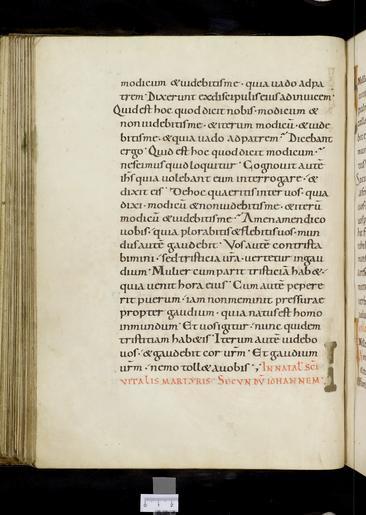 modicum & uidebitis me · quia uado ad pa
trem · Dixerunt ex discipulis eius ad inuicem ·
Quid est hoc quod dicit nobis · modicum &
non uidebitis me · & iterum modicū & uide
bitis me · & quia uado ad patrem · Dicebant
ergo · Quid est hoc quod dicit modicum ·
nescimus quid loquitur · Cognouit autē
ihs quia uolebant eum interrogare · &
dixit eis · De hoc quaeritis inter uos · quia
dixi · modicū & non uidebitis me · & iterū
modicū & uidebitis me · Amen amen dico
uobis · quia plorabitis & flebitis uos · mun
dus autē gaudebit · Vos autē contrista
bimini · sed tristicia ura uertetur in gau
dium · Mulier cum parit tristiciā hab& ·
quia uenit hora eius · Cum autē pepere
rit puerum · iam non meminit pressurae
propter gaudium · quia natus est homo
in mundum · Et uos igitur · nunc quidem
tristitiam hab&is · Iterum autē uidebo
uos · & gaudebit cor urm · Et gaudium
urm · nemo toll& a uobis · IN NATAL SCI
VITALIS MARTYRIS · SECUNDŪ IOHANNEM ·